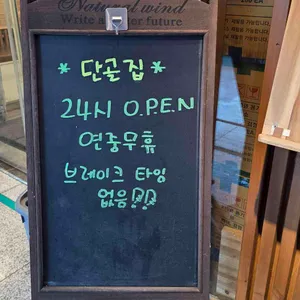 Natural wind
Write your future
* 단골집 *
24시 O.P.E.N
연중무휴
브레이크 타임
없음!!